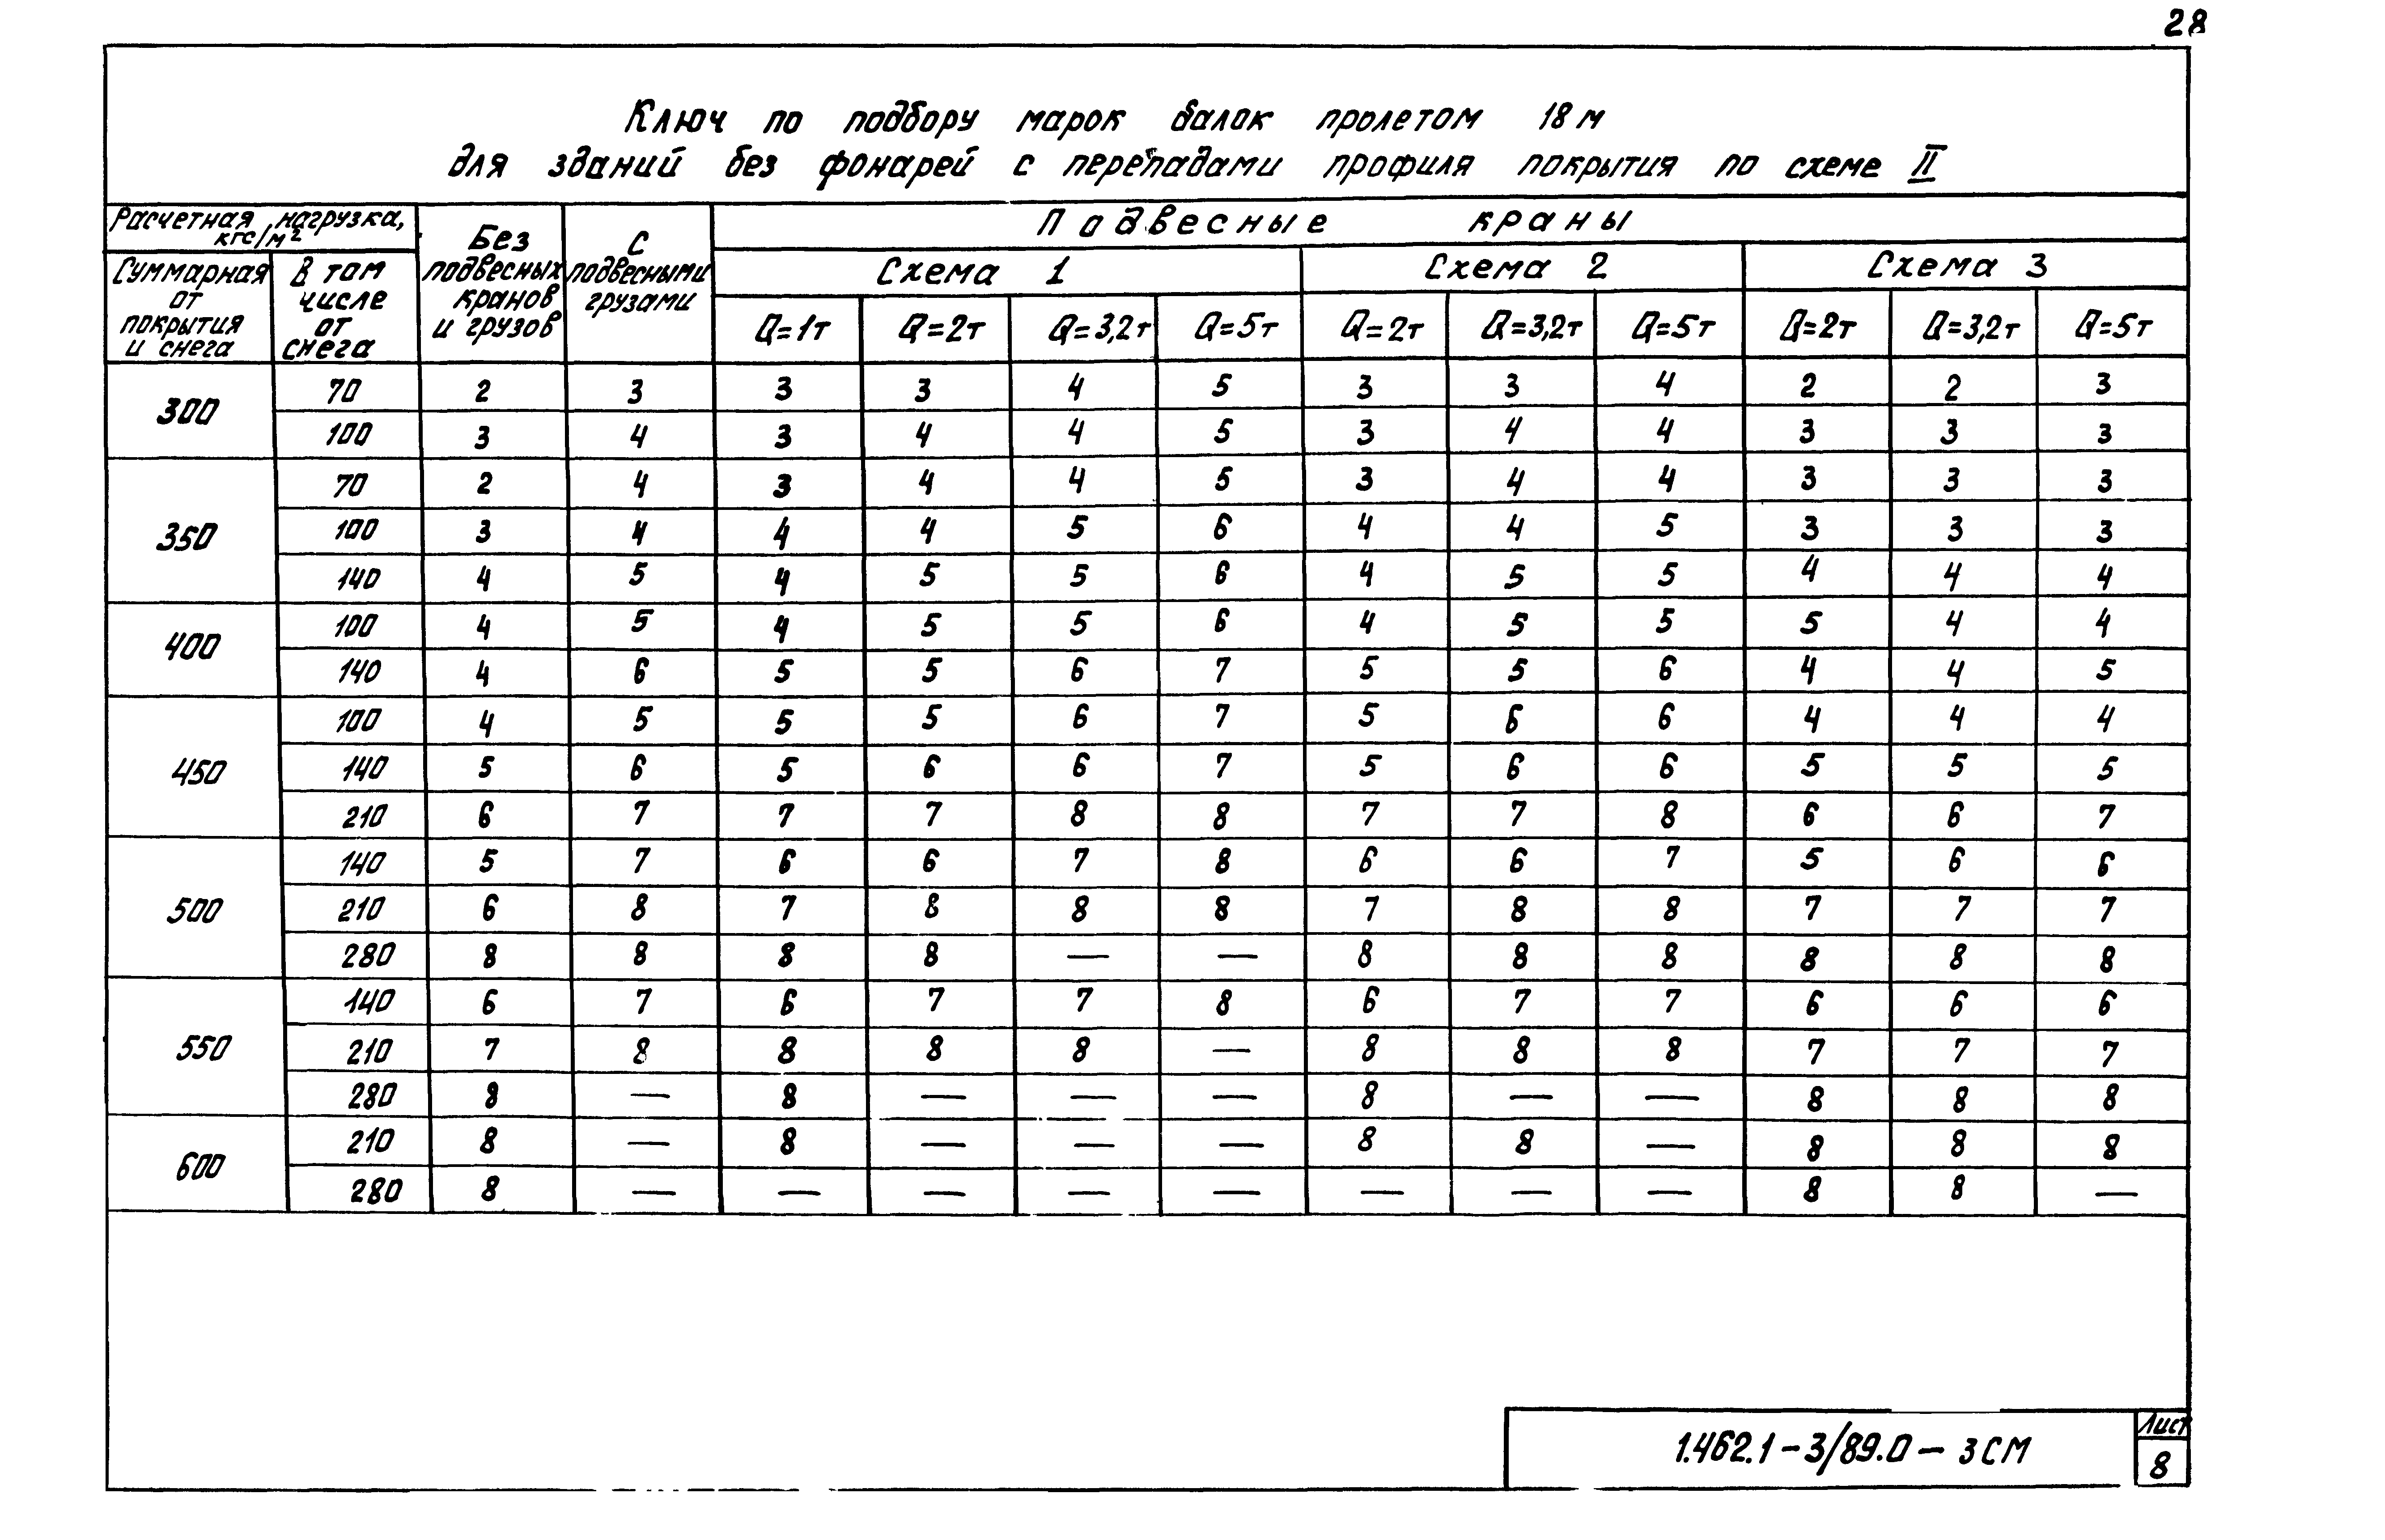 28
Ключ по подбору марок балок пролетом 18 м
для зданий без фонарей с перепадами профиля покрытия по схеме II
Расчетная нагрузка, кгс/м² Без подвесных кранов и грузов С подвесными грузами Подвесные краны
Суммарная от покрытия и снега В том числе от снега Схема 1 Схема 2 Схема 3
Q=1т Q=2т Q=3,2т Q=5т Q=2т Q=3,2т Q=5т Q=2т Q=3,2т Q=5т
300 70 2 3 3 3 4 5 3 3 4 2 2 3
100 3 4 3 4 4 5 3 4 4 3 3 3
350 70 2 4 3 4 4 5 3 4 4 3 3 3
100 3 4 4 4 5 6 4 4 5 3 3 3
140 4 5 4 5 5 6 4 5 5 4 4 4
400 100 4 5 4 5 5 6 4 5 5 5 4 4
140 4 6 5 5 6 7 5 5 6 4 4 5
450 100 4 5 5 5 6 7 5 6 6 4 4 4
140 5 6 5 6 6 7 5 6 6 5 5 5
210 6 7 7 7 8 8 7 7 8 6 6 7
500 140 5 7 6 6 7 8 6 6 7 5 6 6
210 6 8 7 8 8 8 7 8 8 7 7 7
280 8 8 8 8 — — 8 8 8 8 8 8
550 140 6 7 6 7 7 8 6 7 7 6 6 6
210 7 8 8 8 8 — 8 8 8 7 7 7
280 8 — 8 — — — 8 — — 8 8 8
600 210 8 — 8 — — — 8 8 — 8 8 8
280 8 — — — — — — — — 8 8 —
1.462.1-3/89.0-3СМ
Лист
8